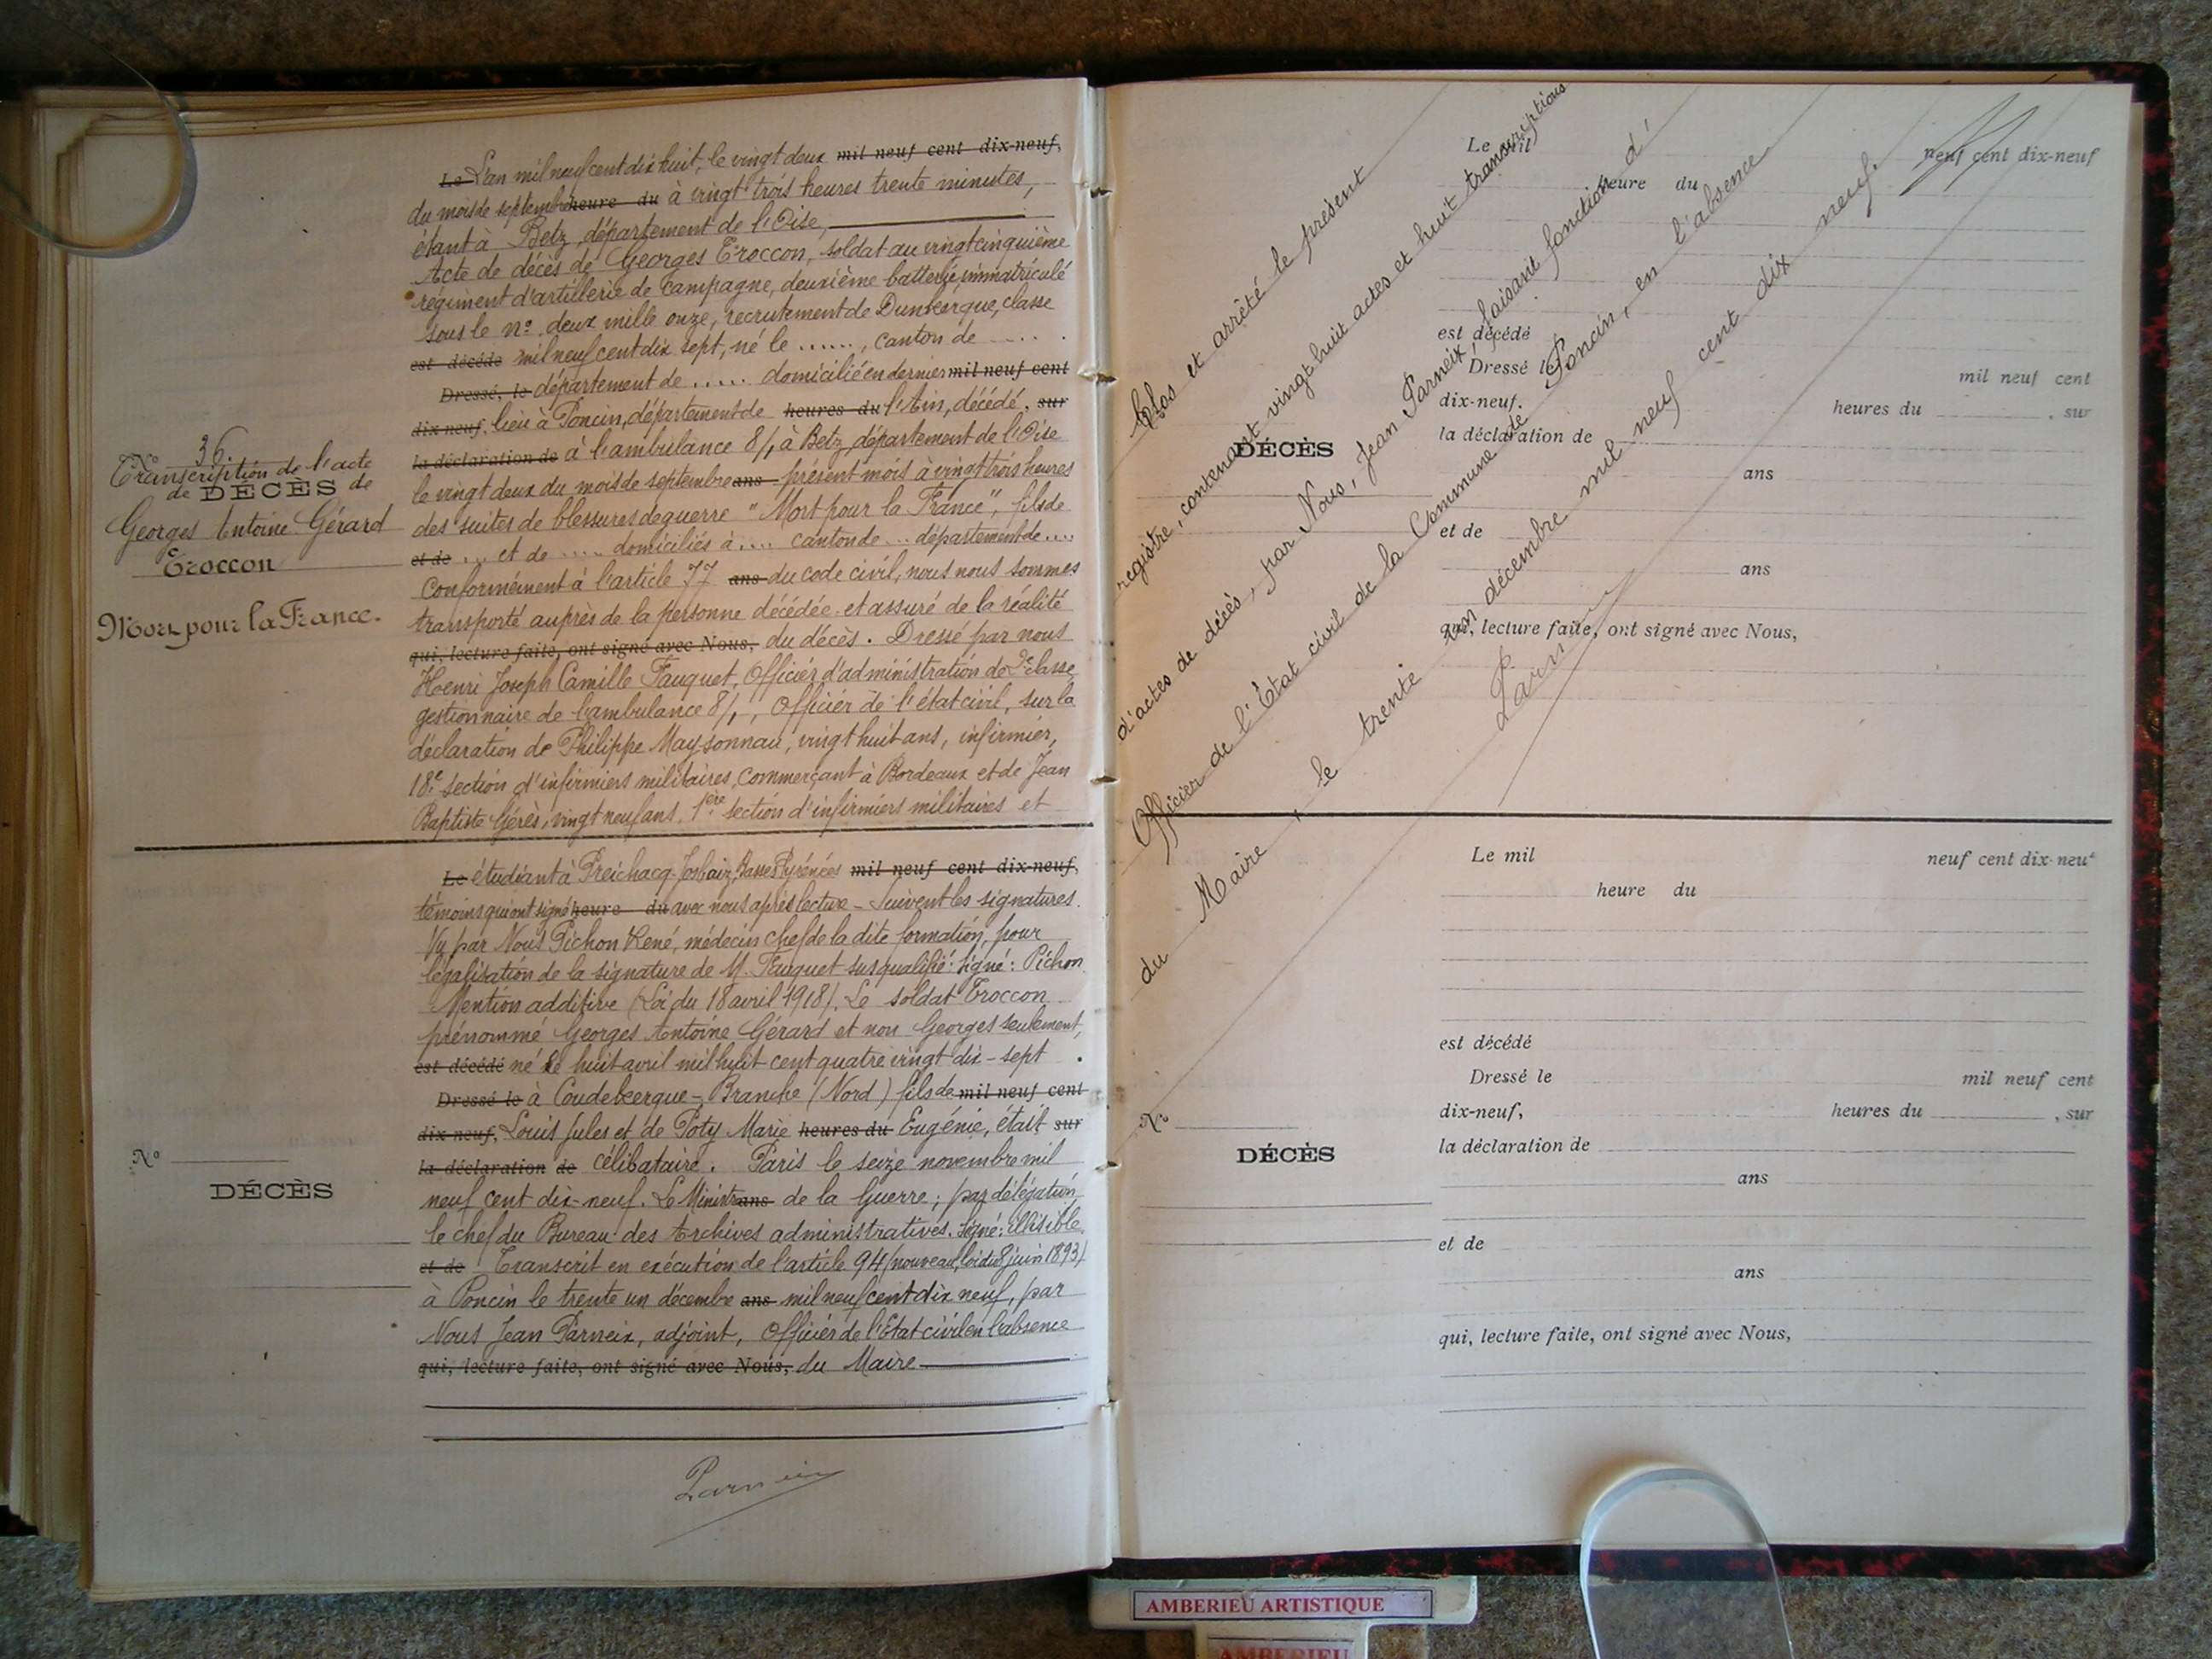 Le L'an mil neuf cent dix huit, le vingt deux mil neuf cent dix-neuf,
du mois de septembre heure du à vingt trois heures trente minutes,
étant à Betz, département de l'Oise,
Acte de décès de Georges Troccon, soldat au vingt cinquième
régiment d'artillerie de campagne, deuxième batterie, immatriculé
sous le n° deux mille onze, recrutement de Dunkerque, classe
est décédé mil neuf cent dix sept, né le ......, canton de ......
Dressé, le département de ..... domicilié en dernier mil neuf cent
dix neuf, lieu à Poncin, département de heures du l'Ain, décédé, sur
la déclaration de à l'ambulance 8/1 à Betz, département de l'Oise
le vingt deux du mois de septembre ans présent mois à vingt trois heures
des suites de blessures de guerre "Mort pour la France", fils de
et de ... et de ..... domiciliés à .... canton de ... département de ....
Conformément à l'article 77 ans du code civil, nous nous sommes
transporté auprès de la personne décédée et assuré de la réalité
qui, lecture faite, ont signé avec Nous, du décès. Dressé par nous
Henri Joseph Camille Fauquet, Officier d'administration de classe
gestionnaire de l'ambulance 8/1, Officier de l'état civil, sur la
déclaration de Philippe Maysonnau, vingt huit ans, infirmier,
18e section d'infirmiers militaires, commerçant à Bordeaux et de Jean
Baptiste Gérès, vingt neuf ans, 1ère section d'infirmiers militaires et
N° 36.
Transcription de l'acte
de DÉCÈS de
Georges Antoine Gérard
Troccon
Mort pour la France.
Le étudiant à Préchacq-Josbaig, Basses Pyrénées mil neuf cent dix-neuf,
témoins qui ont signé heure du avec nous après lecture - Suivent les signatures.
Vu par Nous Pichon René, médecin chef de la dite formation, pour
légalisation de la signature de M. Fauquet susqualifié: Signé: Pichon
Mention additive (Loi du 18 avril 1918). Le soldat Troccon
prénommé Georges Antoine Gérard et non Georges seulement,
est décédé né le huit avril mil huit cent quatre vingt dix-sept .
Dressé le à Coudekerque-Branche (Nord) fils de mil neuf cent
dix neuf, Louis Jules et de Poty Marie heures du Eugénie, était sur
la déclaration de célibataire. Paris le seize novembre mil
neuf cent dix-neuf. Le Ministre ans de la Guerre; par délégation
le chef du Bureau des Archives administratives. Signé: illisible.
et de Transcrit en exécution de l'article 94 (nouveau, loi du 8 juin 1893)
à Poncin le trente un décembre ans mil neuf cent dix neuf, par
Nous Jean Parneix, adjoint, Officier de l'Etat civil en l'absence
qui, lecture faite, ont signé avec Nous, du Maire
N°
DÉCÈS
Parneix
Clos et arrêté le présent
registre, contenant vingt huit actes et huit transcriptions
d'actes de décès, par Nous, Jean Parneix, faisant fonction d'
Officier de l'État civil de la Commune de Poncin, en l'absence
du Maire, le trente un décembre mil neuf cent dix neuf.
Parneix
Le mil neuf cent dix-neuf
heure du
est décédé
Dressé le mil neuf cent
dix-neuf. heures du , sur
la déclaration de
DÉCÈS
ans
et de
ans
qui, lecture faite, ont signé avec Nous,
Le mil neuf cent dix-neuf
heure du
est décédé
Dressé le mil neuf cent
dix-neuf, heures du , sur
la déclaration de
N°
DÉCÈS
ans
et de
ans
qui, lecture faite, ont signé avec Nous,
AMBERIEU ARTISTIQUE
AMBERIEU